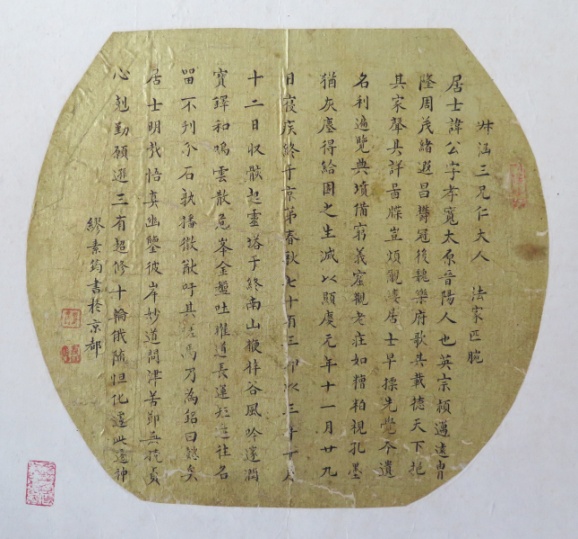 叔涵三兄仁大人 法家正腕
居士諱公字孝寬太原晉陽人也英宗穎邁遠冑
隆周茂緒遐昌鬱冠後魏樂府歌其載德天下挹
其家聲具詳啚牒豈煩覼縷居士早標先覺本遺
名利遍覽典墳備窮義窟觀老莊如糟粕視孔墨
猶灰塵得給園之生滅以顯慶元年十一月廿九
日寢疾終于京第春秋七十有三即以三年十月
十二日收骸起靈塔于終南山梗梓谷風吟邃澗
寶鐸和鳴雲散危峯金盤吐曜道長運短迹往名
留不刊介石孰播徽猷吁其嗟焉乃為銘曰懿矣
居士明哉悟真幽鑒彼岸妙道問津苦節無撓貞
心剋勤顧邈三有超修十輪俄隨怛化遽此遺神
繆素筠書於京都